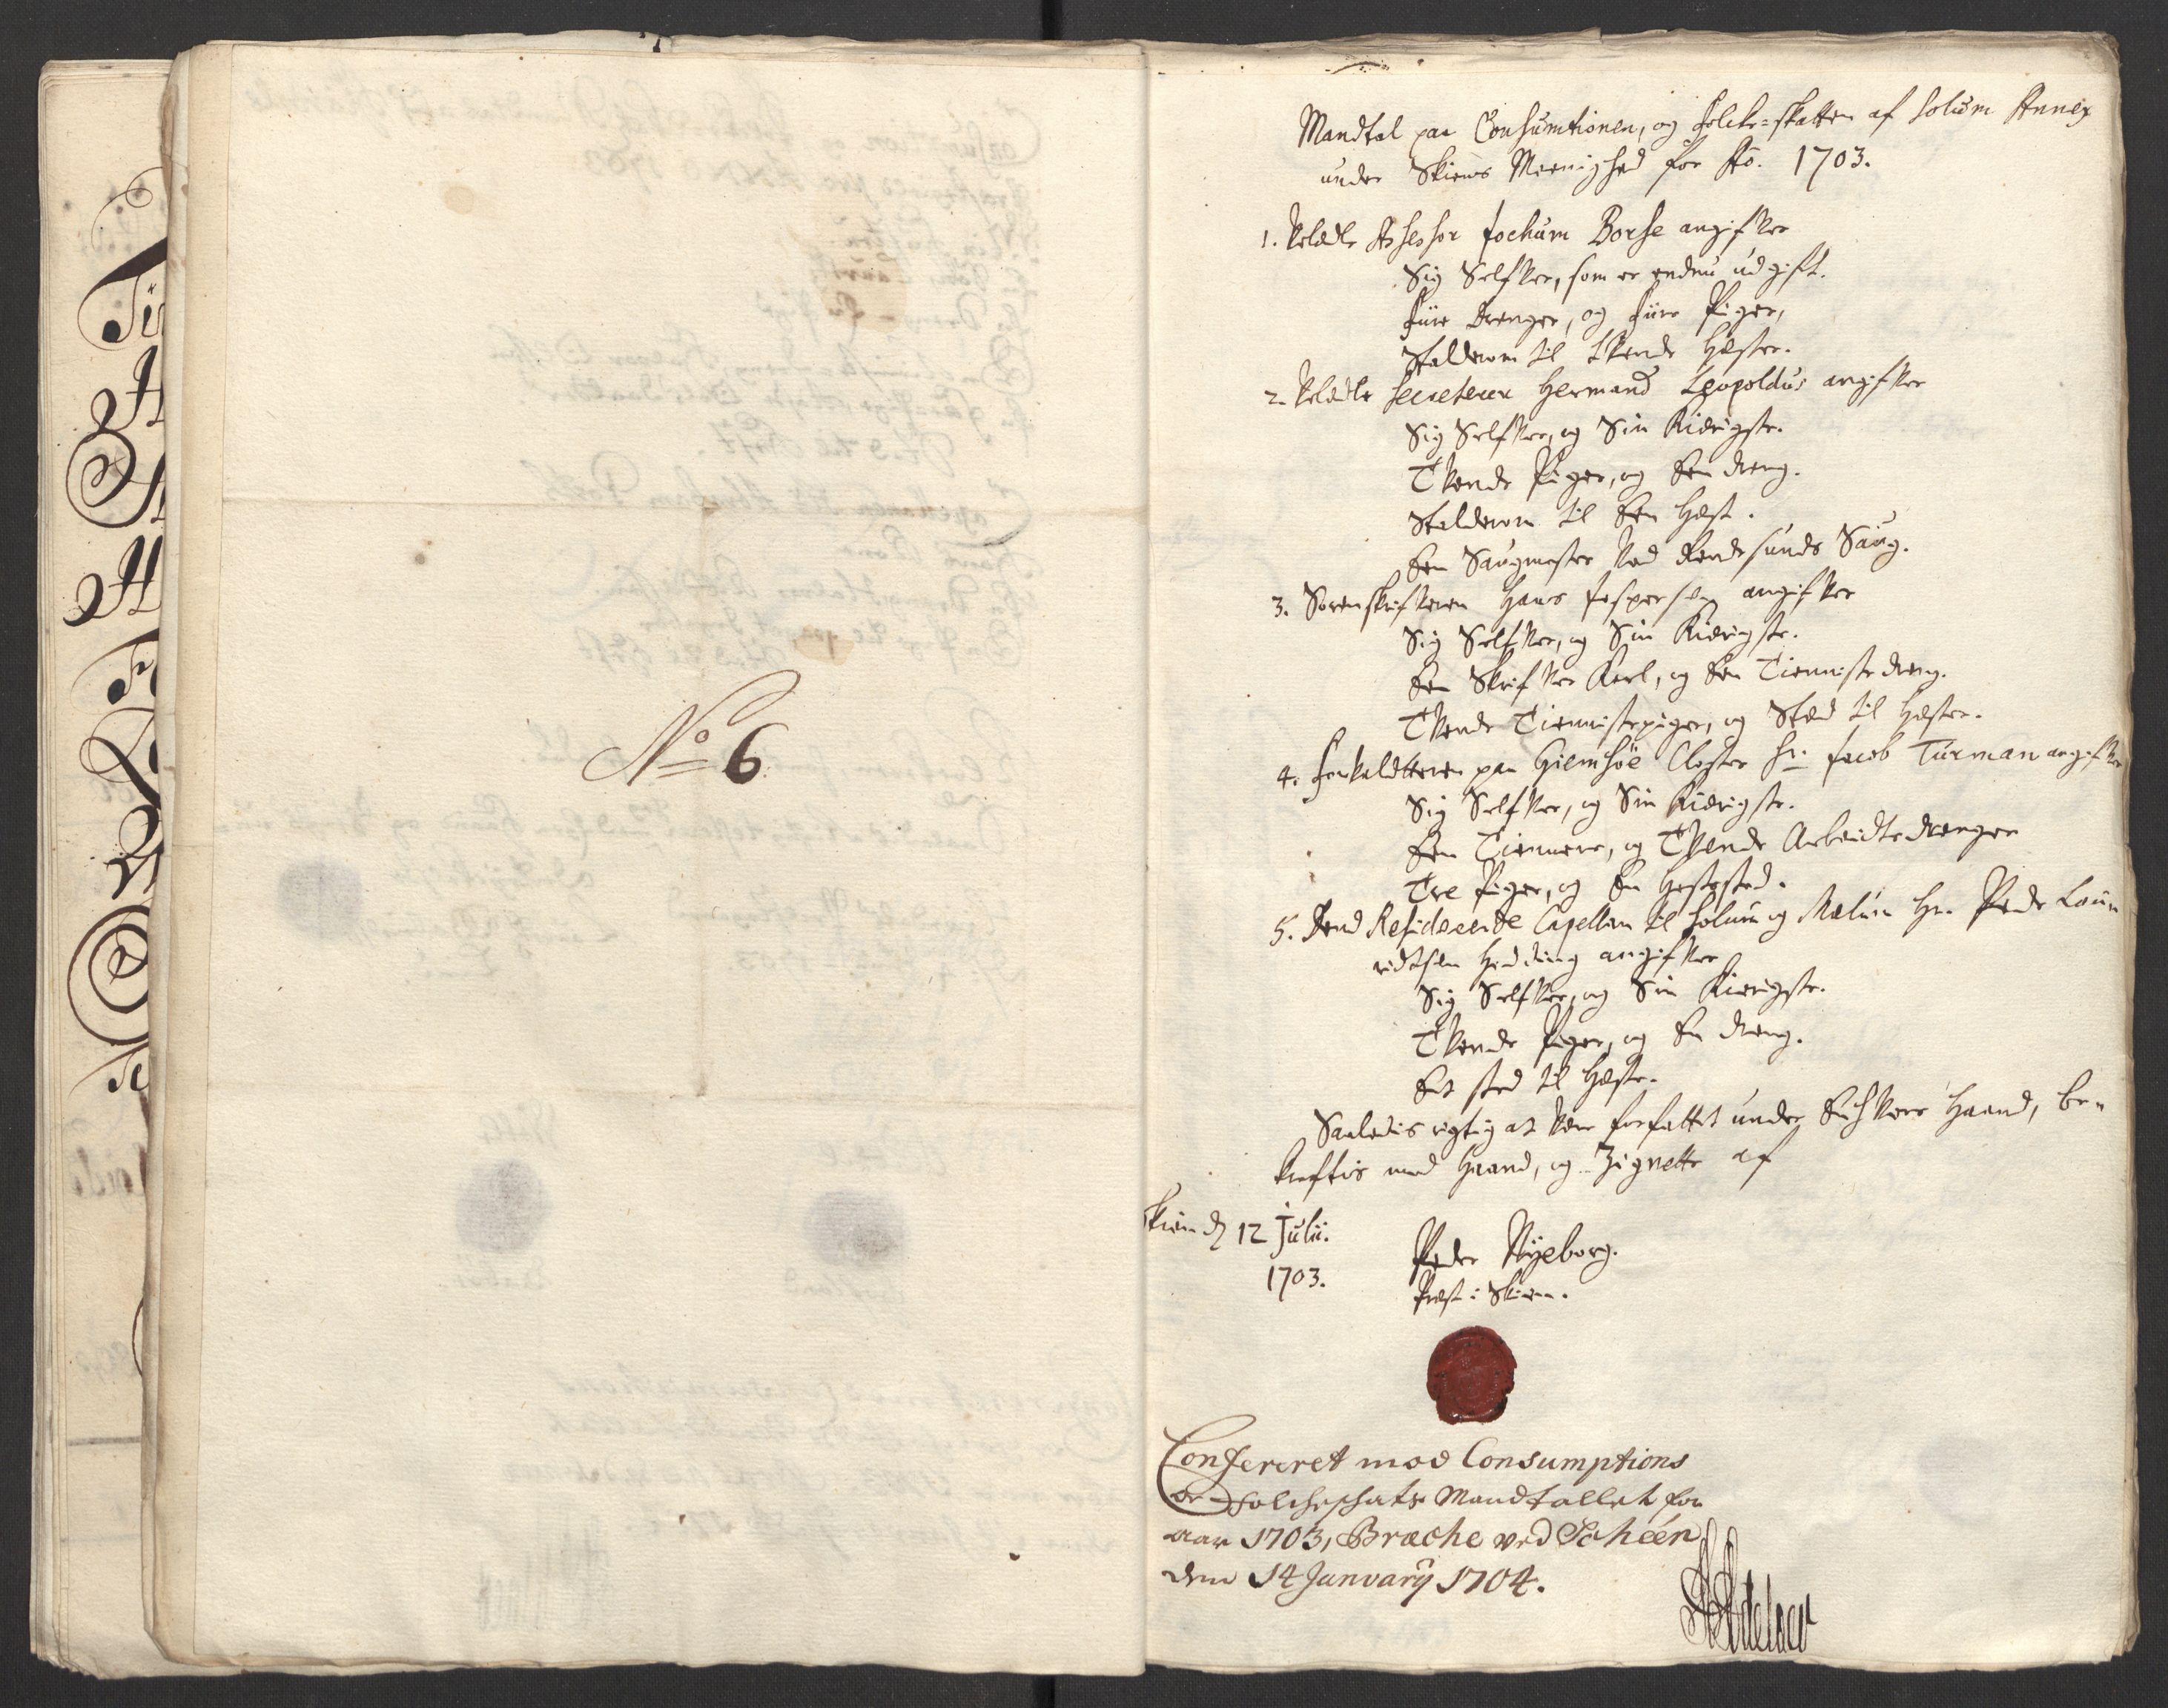 No 6
Mandtal paa Consumtionen, og Folcke-skatten af Solum Annex
under Skiens Meenighed for Ao. 1703.
1. Velædle Assessor Jochum Borse angifver
Sig Selfver, som er endnu ugift.
Fire Drenger, og Fire Piger,
Stalderom til Tvende Hæster.
2. Velædle Secreterer Hermand Leopoldus angifver
Sig Selfver, og Sin Kierigste.
Tvende Piger, og Een dreng.
Stalderom til Een Hæst.
Een Saugmester ved Sunds Saug.
3. Sorenskrifveren Hans Jespersen angifver
Sig Selfver, og Sin Kierigste.
Een Skrifver Karl, og Een Tienniste dreng.
Tvende Tiennistepiger, og Sted til Hæster.
4. Forvaltteren paa Giemsøe Closter Sr. Jacob Turman angifver
Sig Selfver, og Sin Kierigste.
Een Tiennere, og Tvende Arbeidtsdrenger
Tre Piger, og En Hestested.
5. Dend Residerende Capellan til Solum og Mælum Hr. Peder Lau-
ridtsen Hedding angifver
Sig Selfver, og Sin Kierigste.
Tvende Piger, og En dreng.
Et sted til Hæste.
Saaledis rigtig at være forfattet under Enhvers Haand, be-
kreftis med Haand, og Zignette af
Skien d. 12 Julii.
1703.
Peder Nyeborg.
Præst i Skien.
Confereret mod Consumptions
og Folcheschats Mandtallet for
aar 1703, Bratche ved Schéén
dem 14 January 1704.
Adelaer